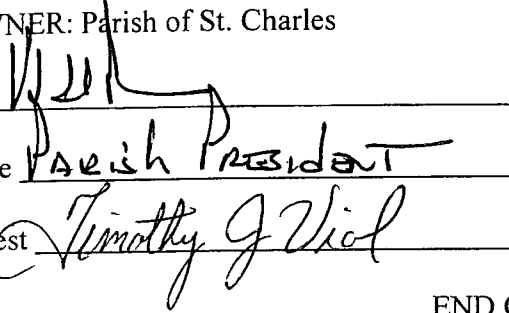 WNER: Parish of St. Charles
e PARish PRESIdenT
est Timothy J Vial
END